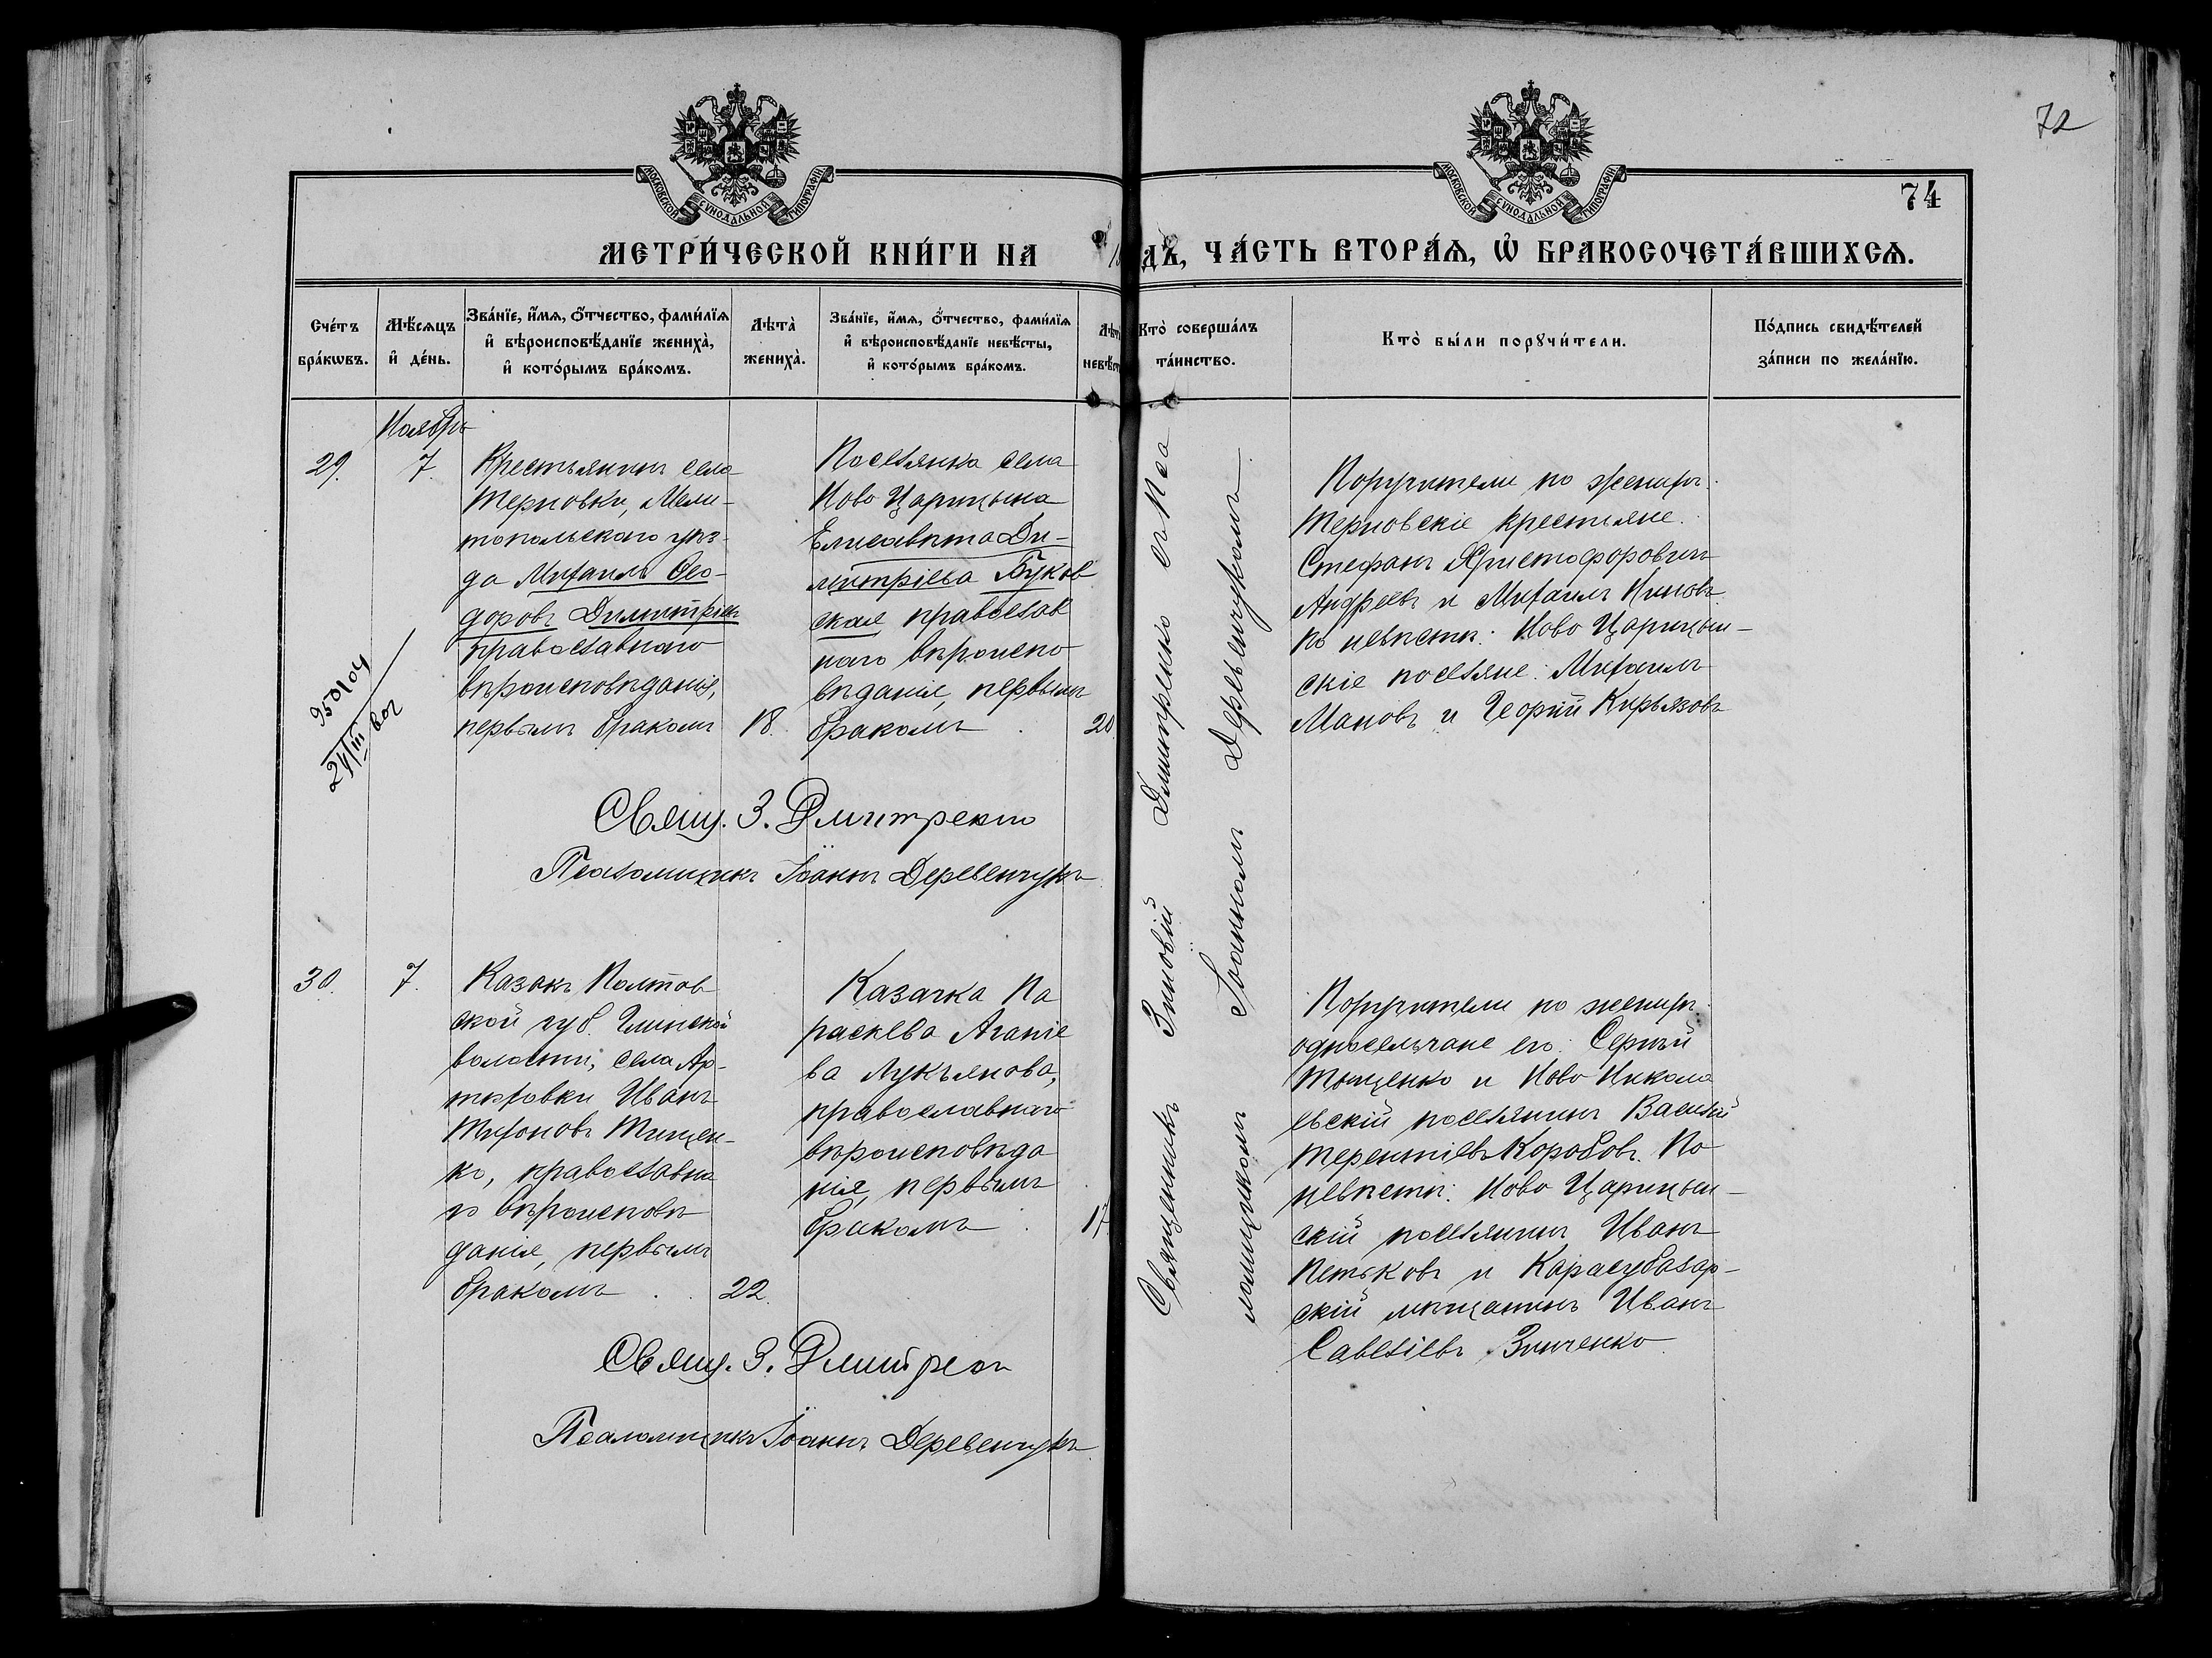 72
МОСКОВСКОЙ СѴНОДАЛЬНОЙ ТИПОГРАФІИ
МОСКОВСКОЙ СѴНОДАЛЬНОЙ ТИПОГРАФІИ
74
МЕТРИ́ЧЕСКОЙ КНИ́ГИ НА
ДЪ, ЧА́СТЬ ВТОРА́Ѧ, Ѡ҆ БРАКОСОЧЕТА́ВШИХСѦ.
Сче́тъ
бра́кѡвъ.
Мѣ́сѧцъ
и҆ де́нь.
Зва́нїе, и҆́мѧ, ѻ҆́тчество, фами́лїѧ
и҆ вѣроисповѣ́данїе жениха̀,
и҆ кото́рымъ бра́комъ.
Лѣта̀
жениха̀.
Зва́нїе, и҆́мѧ, ѻ҆́тчество, фами́лїѧ
и҆ вѣроисповѣ́данїе невѣ́сты,
и҆ кото́рымъ бра́комъ.
Лѣт
невѣ́ст
Кто̀ соверша́лъ
та́инство.
Кто̀ бы́ли порꙋчи́тели.
По́дпись свидѣ́телей
за́писи по жела́нїю.
Ноябрь
29.
7.
Крестьянинъ села
Терновки, Мели-
топольскаго уѣз-
да Михаилъ Ѳео-
доровъ Димитріевъ
православнаго
вѣроисповѣданія,
первымъ бракомъ
18.
Поселянка села
Ново Царицына
Елисавета Ди-
митріева Буков
ская православ
наго вѣроиспо
вѣданія, первымъ
бракомъ
20
Поручители по женихѣ:
Терновскіе крестьяне
Стефанъ Христофоровичъ
Андреевъ и Михаилъ Киновъ.
по невѣстѣ: Ново Царицын-
скіе поселяне: Михаилъ
Мановъ и Георгій Кирьязовъ
950/04
24/III
Свящ. З. Дмитренко
Псаломщикъ Іоаннъ Деревенчукъ
30.
7.
Казакъ Полтов
ской губ. Глинской
волости, села Ар-
тюховки Иванъ
Тихоновъ Тищен-
ко, православна
го вѣроисповѣ
данія, первымъ
бракомъ
22.
Казачка Па
раскева Агапіе
ва Лукьянова,
православнаго
вѣроисповѣда
нія, первымъ
бракомъ
17.
Поручители по женихѣ:
односельчане его: Сергѣй
Тищенко и Ново Никола
евскій поселянинъ Василій
Терентіевъ Коробовъ. По
невѣстѣ: Ново Царицын-
скій поселянинъ Иванъ
Петьковъ и Карасубазар-
скій мѣщанинъ Иванъ
Савеліевъ Зинченко
Свящ. З. Дмитрен
Псаломщикъ Іоаннъ Деревенчукъ
Священникъ Зиновій Димитренко съ Пса
ломщикомъ Іоанномъ Деревенчукомъ.